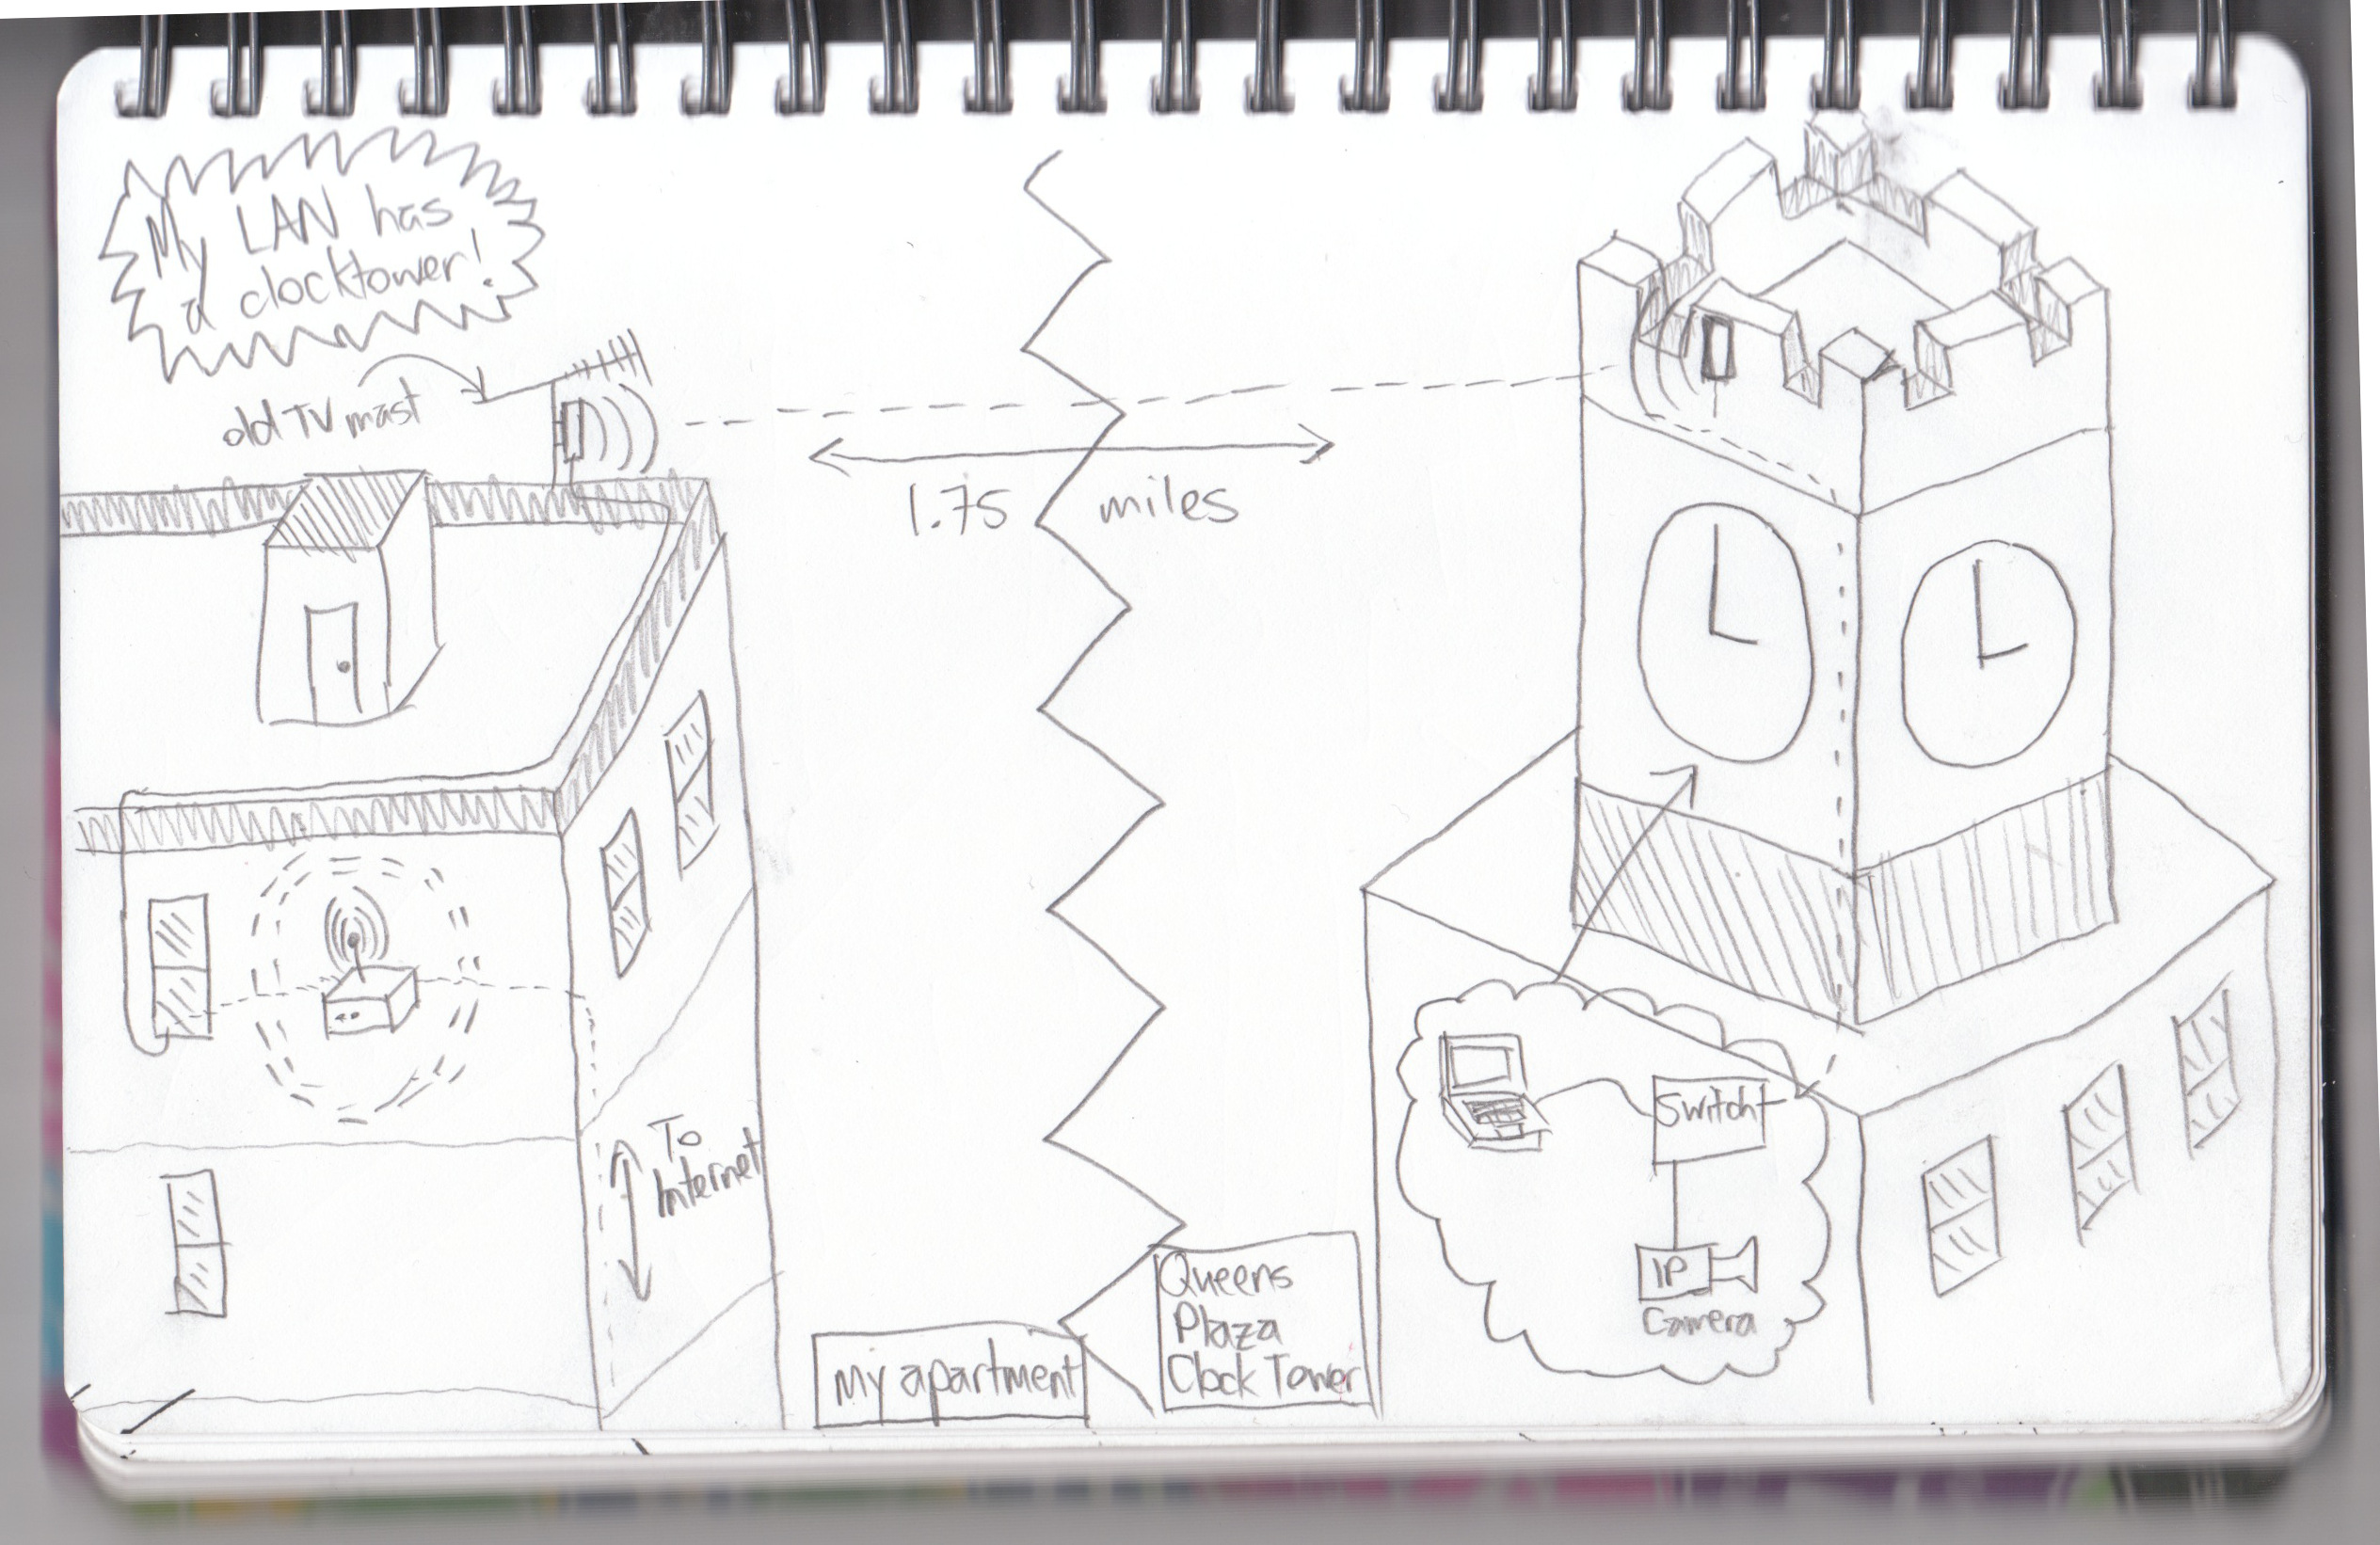 My LAN has
a clocktower!
old TV mast
1.75 miles
To
Internet
my apartment
Queens
Plaza
Clock Tower
Switch
IP
Camera